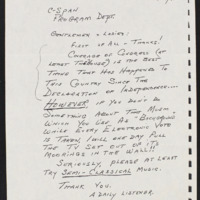 C-SPAN
PROGRAM DEPT
GENTLEMEN & LADIES:
FIRST OF ALL - THANKS!
COVERAGE OF CONGRESS (AT
LEAST THE HOUSE) IS THE BEST
THING THAT HAS HAPPENED TO
THIS COUNTRY SINCE THE
DECLARATION OF INDEPENDENCE....
HOWEVER, IF YOU DON'T DO
SOMETHING ABOUT THE MUSIC
WHICH YOU USE AS BACKGROUND
WHILE EVERY ELECTRONIC VOTE
IS TAKEN, I WILL ONE DAY PULL
THE TV SET OUT OF ITS
MOORINGS IN THE WALL!!
SERIOUSLY, PLEASE AT LEAST
TRY SEMI-CLASSICAL MUSIC.
THANK YOU.
A DAILY LISTENER.